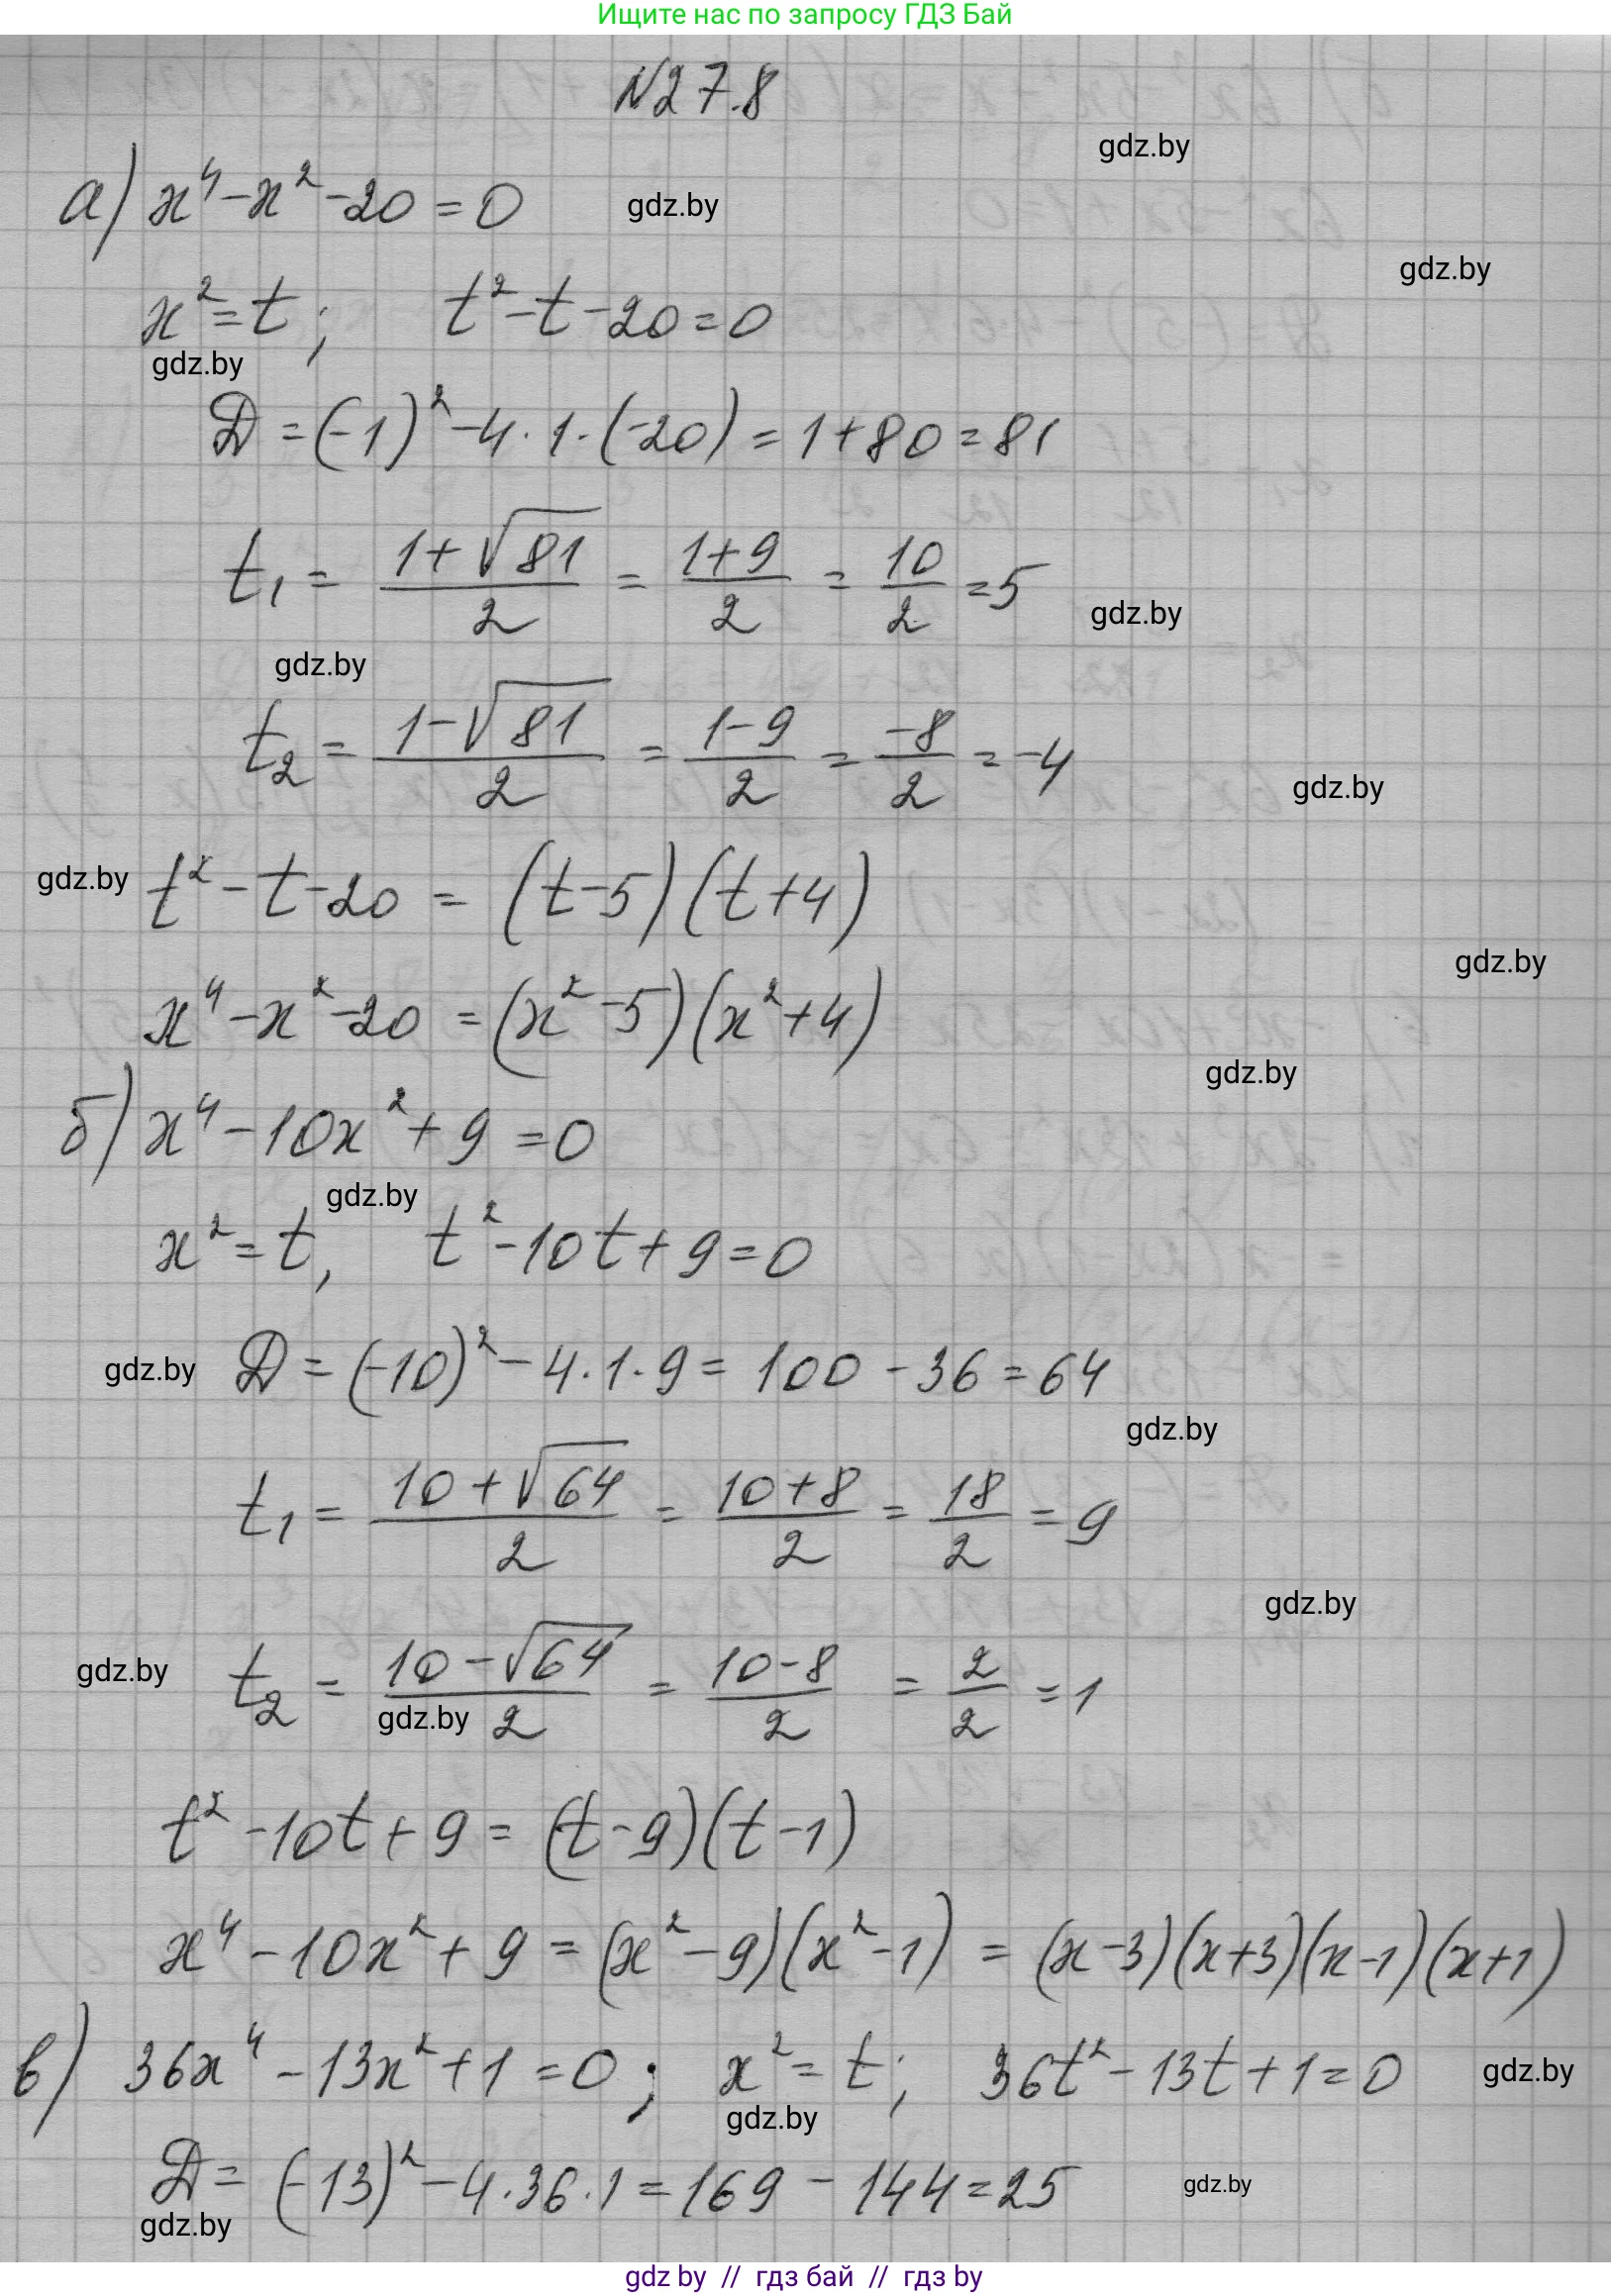 Ищите нас по запросу ГДЗ Бай
N27.8
gdz.by
а) x⁴-x²-20=0
gdz.by
gdz.by
x²=t; t²-t-20=0
gdz.by
D=(-1)²-4·1·(-20)=1+80=81
t₁ = (1+√81)/2 = (1+9)/2 = 10/2 =5
gdz.by
gdz.by
t₂ = (1-√81)/2 = (1-9)/2 = -8/2 = -4
gdz.by
gdz.by
t²-t-20 = (t-5)(t+4)
gdz.by
x⁴-x²-20 =(x²-5)(x²+4)
gdz.by
б) x⁴-10x²+9=0
gdz.by
x²=t, t²-10t+9=0
gdz.by
D=(-10)²-4·1·9=100-36=64
gdz.by
t₁ = (10+√64)/2 = (10+8)/2 = 18/2 = 9
gdz.by
gdz.by
t₂ = (10-√64)/2 = (10-8)/2 = 2/2 =1
gdz.by
t²-10t+9=(t-9)(t-1)
x⁴-10x²+9=(x²-9)(x²-1) = (x-3)(x+3)(x-1)(x+1)
в) 36x⁴-13x²+1=0; x²=t; 36t²-13t+1=0
gdz.by
gdz.by
D=(-13)²-4·36·1=169-144=25
gdz.by
gdz.by
gdz by // гдз бай // гдз by